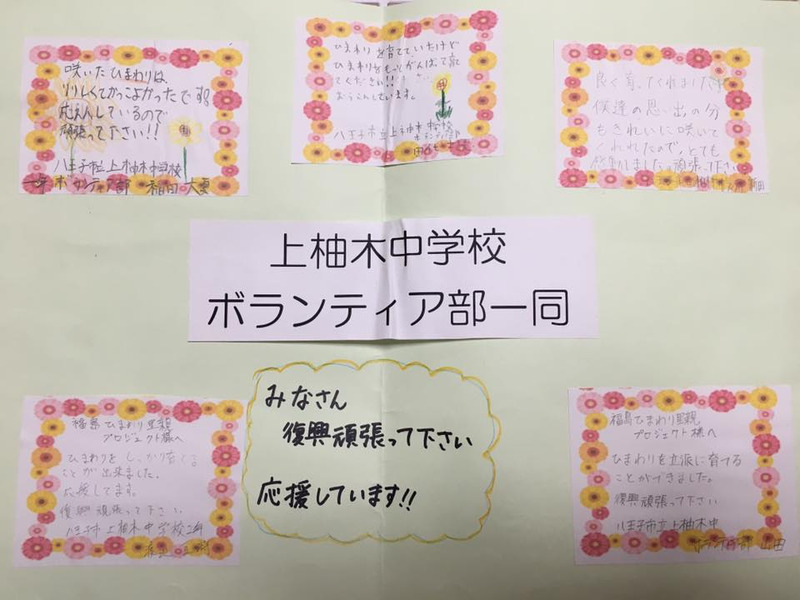 咲いたひまわりは、
りりしくてかっこよかったです。
応えんしているので
頑張って下さい!!
八王子市立上柚木中学校
ボランティア部 稲田
ひまわりを育てていたけど
ひまわりももっとがんばって育
てください!!
おうえんしています。
八王子市立上柚木中学校
良く育ってくれました
僕達の思い出の分
もきれいに咲いて
くれたので、とても
頑張って下さい
上柚木中学校
ボランティア部一同
福島ひまわり里親
プロジェクト様へ
ひまわりをしっかり育てる
ことが出来ました。
応援してます。
復興頑張って下さい。
八王子市上柚木中学校2年
みなさん
復興頑張って下さい
応援しています!!
福島ひまわり里親
プロジェクト様へ
ひまわりを立派に育てる
ことができました。
復興頑張って下さい
八王子市立上柚木中
山田